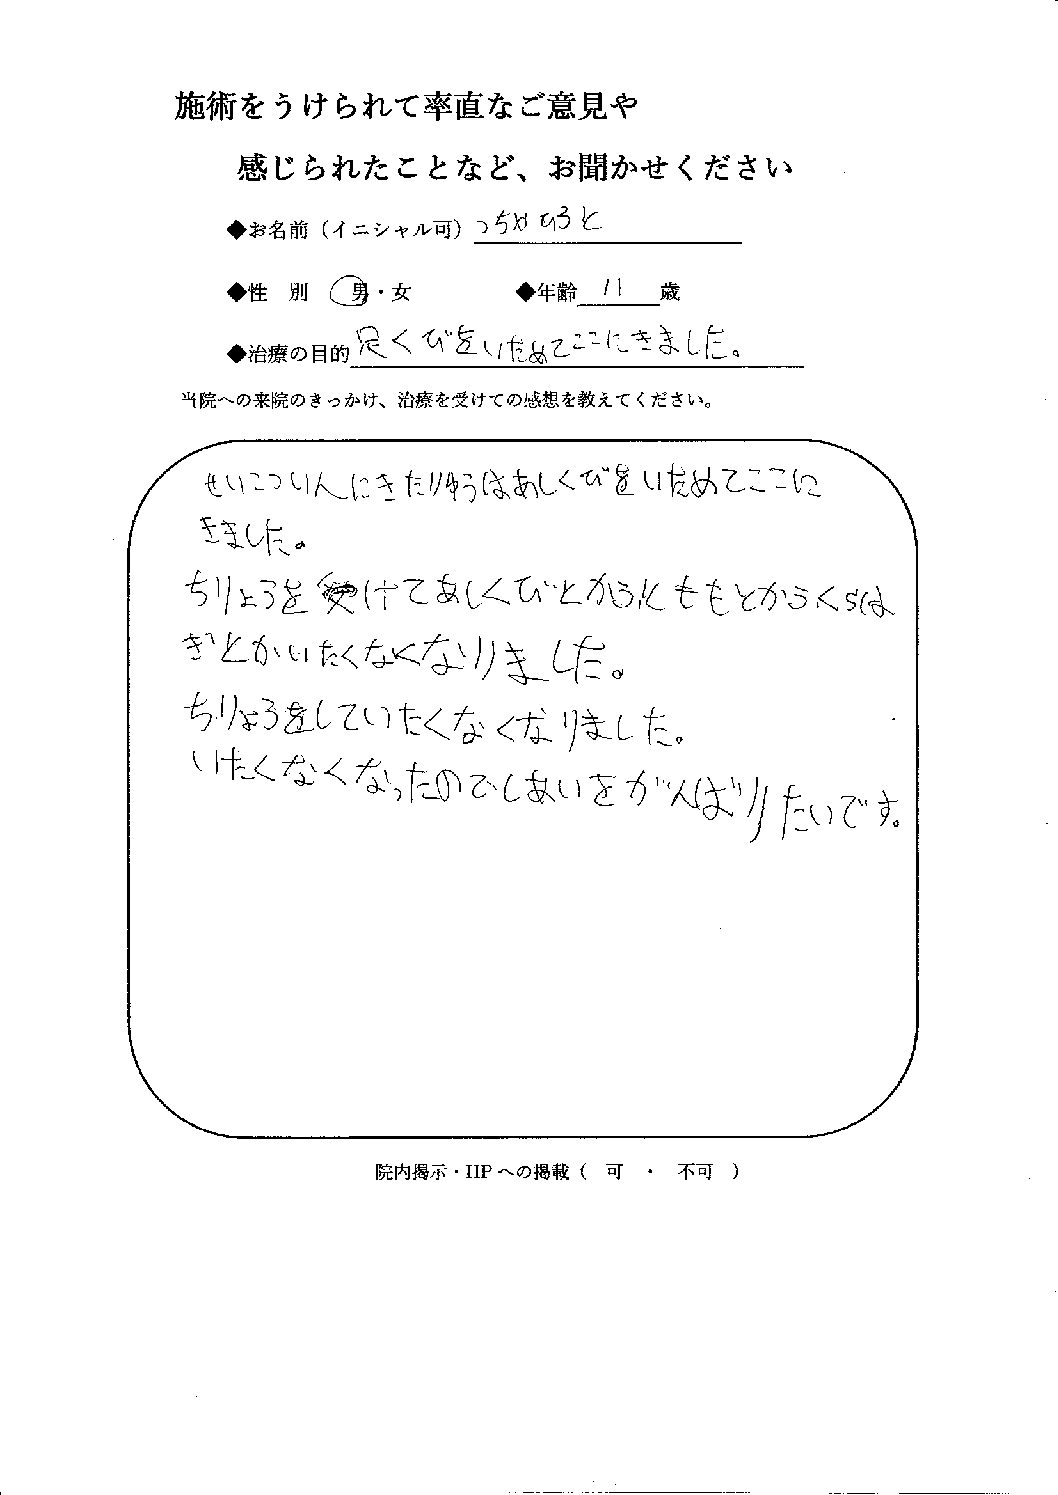 施術をうけられて率直なご意見や
感じられたことなど、お聞かせください
◆お名前（イニシャル可）つちやひろと
◆性　別　男・女　◆年齢 11 歳
◆治療の目的 足くびをいためてここにきました。
当院への来院のきっかけ、治療を受けての感想を教えてください。
せいこついんにきたりゆうはあしくびをいためてここに
きました。
ちりょうを受けてあしくびとかふとももとかふくらは
ぎとかいたくなくなりました。
ちりょうをしていたくなくなりました。
いたくなくなったのでしあいをがんばりたいです。
院内掲示・HPへの掲載（　可　・　不可　）